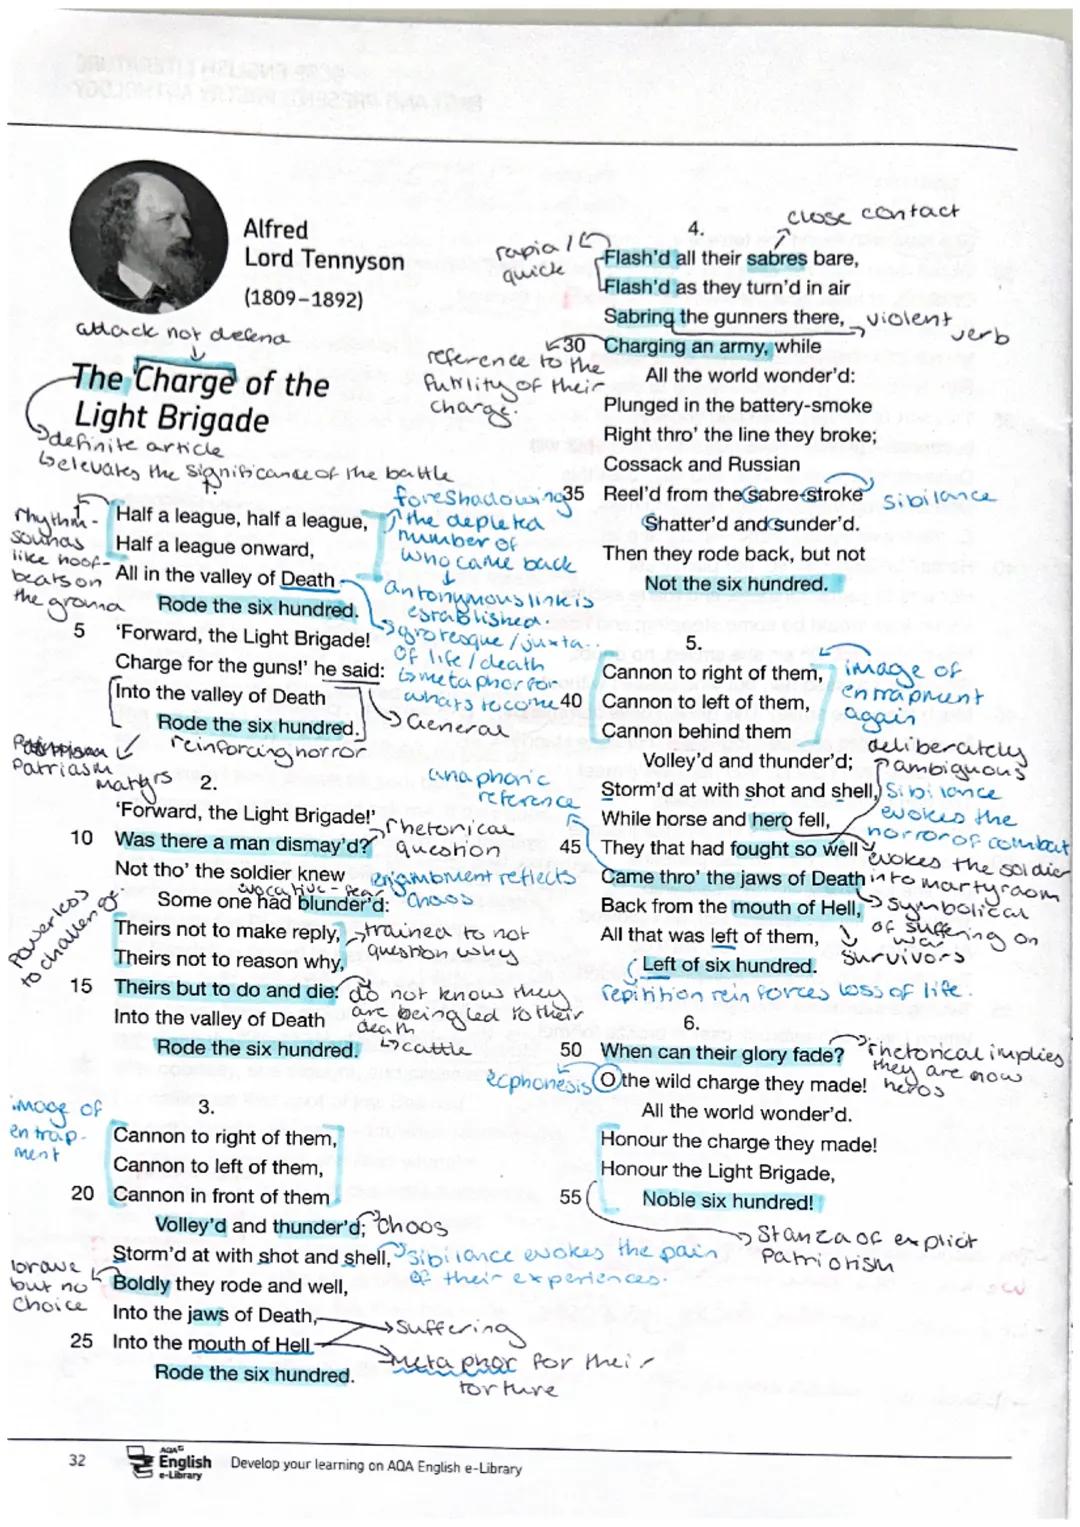 Alfred
Lord Tennyson
(1809–1892)
attack not defend
The Charge of the
Light Brigade
definite article
elevates the significance of the battle
1.
rhythm -
sounds
like hoof-
beats on
the ground
Half a league, half a league,
Half a league onward,
All in the valley of Death
Rode the six hundred.
5 ‘Forward, the Light Brigade!
Charge for the guns!’ he said:
Into the valley of Death
Rode the six hundred.
foreshadowing
the depleted
number of
who came back
antonymous link is
established.
grotesque / juxta.
of life / death
metaphor for
whats to come
General
reinforcing horror
Patriasm
Martyrs
2.
anaphoric
reference
‘Forward, the Light Brigade!’
10 Was there a man dismay’d?
rhetorical
question
Not tho’ the soldier knew
enjambment reflects
chaos
vocative - fear
Some one had blunder’d:
Theirs not to make reply,
Theirs not to reason why,
trained to not
question why
15 Theirs but to do and die:
do not know they
are being led to their
death
cattle
Into the valley of Death
Rode the six hundred.
Powerless
to challenge
3.
image of
entrap-
ment
Cannon to right of them,
Cannon to left of them,
20 Cannon in front of them
Volley’d and thunder’d;
chaos
Storm’d at with shot and shell,
sibilance evokes the pain
of their experiences.
brave
but no
choice
Boldly they rode and well,
Into the jaws of Death,
25 Into the mouth of Hell
Rode the six hundred.
suffering
metaphor for their
torture
4.
close contact
rapid /
quick
Flash’d all their sabres bare,
Flash’d as they turn’d in air
Sabring the gunners there,
violent
verb
30 Charging an army, while
reference to the
futility of their
charge.
All the world wonder’d:
Plunged in the battery-smoke
Right thro’ the line they broke;
Cossack and Russian
35 Reel’d from the sabre-stroke
sibilance
Shatter’d and sunder’d.
Then they rode back, but not
Not the six hundred.
5.
Cannon to right of them,
40 Cannon to left of them,
Cannon behind them
image of
entrapment
again
Volley’d and thunder’d;
deliberately
ambiguous
Storm’d at with shot and shell,
sibilance
evokes the
horror of combat
While horse and hero fell,
45 They that had fought so well
evokes the soldier
into martyrdom
Came thro’ the jaws of Death
Back from the mouth of Hell,
symbolical
of suffering on
war
survivors
All that was left of them,
Left of six hundred.
repitition reinforces loss of life.
6.
50 When can their glory fade?
rhetorical implies
they are now
heros
ecphonesis
O the wild charge they made!
All the world wonder’d.
Honour the charge they made!
Honour the Light Brigade,
55 Noble six hundred!
Stanza of explicit
Patriotism
32
AQA
English
e-Library
Develop your learning on AQA English e-Library